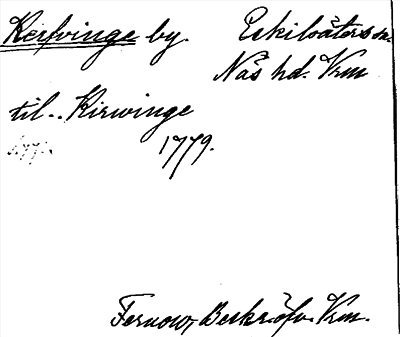 Kerfvinge by. Eskilsäters sn.
Näs hd. Vrm
til.. Kirwinge
1779.
Fernow, Beskr. öfv. Vrm.